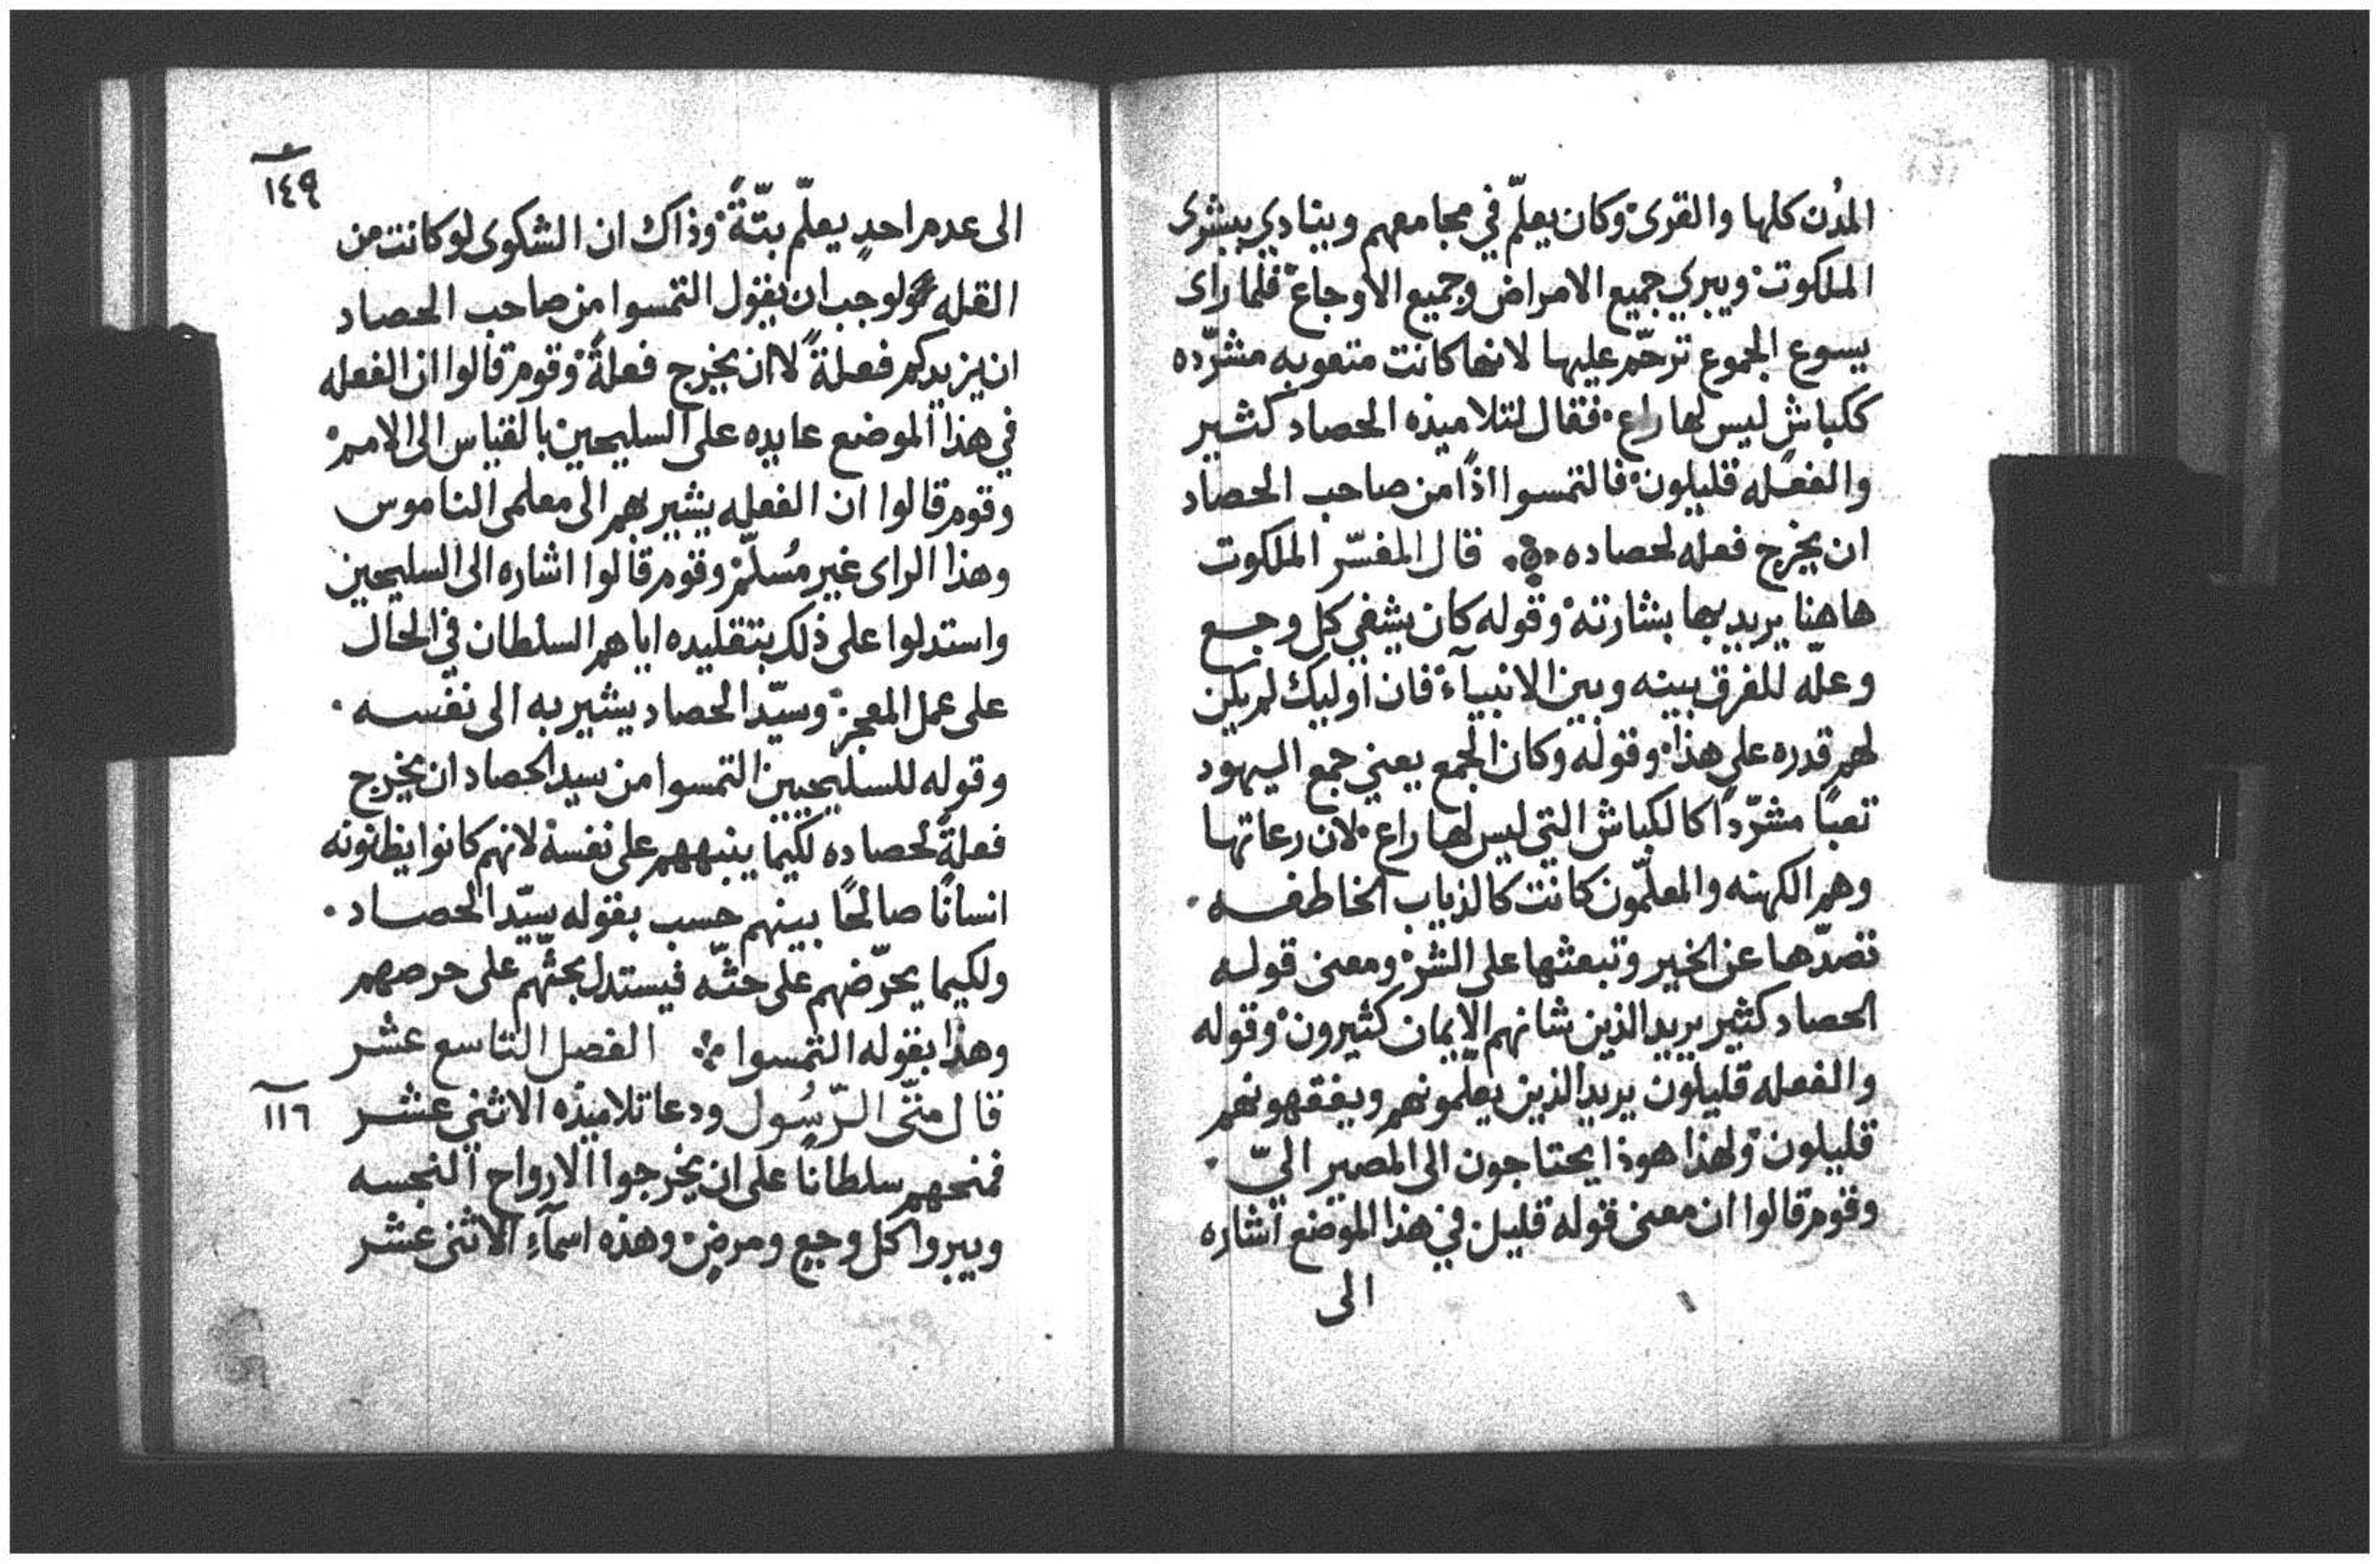 المدُن كلها والقرى وكان يعلّم في مجامعهم وينادي ببشرى
الملكوت ويبري جميع الامراض وجميع الاوجاع فلما راى
يسوع الجموع ترحّم عليها لانها كانت متعوبه مشرّده
ككباشٍ ليس لها راع فقال لتلاميذه الحصاد كثير
والفعله قليلون فالتمسوا اذًا من صاحب الحصاد
ان يخرج فعله لحصاده قال المفسّر الملكوت
هاهنا يريد بها بشارته وقوله كان يشفي كل وجع
وعلّه للفرق بينه وبين الانبيآء فان اوليك لم يكن
لهم قدره على هذا وقوله وكان الجمع يعني جمع اليهود
تعبًا مشرّدًا كالكباش التي ليس لها راع لان رعاتها
وهم الكهنه والمعلّمون كانت كالذياب الخاطفه
تصدّها عن الخير وتبعثها على الشر ومعنى قوله
الحصاد كثير يريد الذين شانهم الايمان كثيرون وقوله
والفعله قليلون يريد الذين يعلّمونهم ويفقهونهم
قليلون ولهذا هوذا يحتاجون الى المصير اليّ
وقوم قالوا ان معنى قوله قليل في هذا الموضع اشاره
الى
١٤٩
الى عدم احدٍ يعلّم بتّةً وذاك ان الشكوى لو كانت من
القله لوجب ان يقول التمسوا من صاحب الحصاد
ان يزيدكم فعلةً لا ان يخرج فعلةً وقوم قالوا ان الفعله
في هذا الموضع عايده على السليحين بالقياس الى الامم
وقوم قالوا ان الفعله يشير بهم الى معلمى الناموس
وهذا الراى غير مُسلّم وقوم قالوا اشاره الى السليحين
واستدلوا على ذلك بتقليده اياهم السلطان في الحال
على عمل المعجز وسيّد الحصاد يشير به الى نفسه
وقوله للسليحيين التمسوا من سيد الحصاد ان يخرج
فعلةً لحصاده لكيما ينبههم على نفسه لانهم كانوا يظنونه
انسانًا صالحًا بينهم حسب بقوله سيّد الحصاد
ولكيما يحرّضهم على حثّه فيستدل بحثّهم على حرصهم
وهذا بقوله التمسوا الفصل التاسع عشر
قال متّى الرّسُول ودعا تلاميذه الاثني عشر
١١٦
فمنحهم سلطانًا على ان يخرجوا الارواح النجسه
ويبروا كل وجع ومرض وهذه اسمآء الاثنى عشر